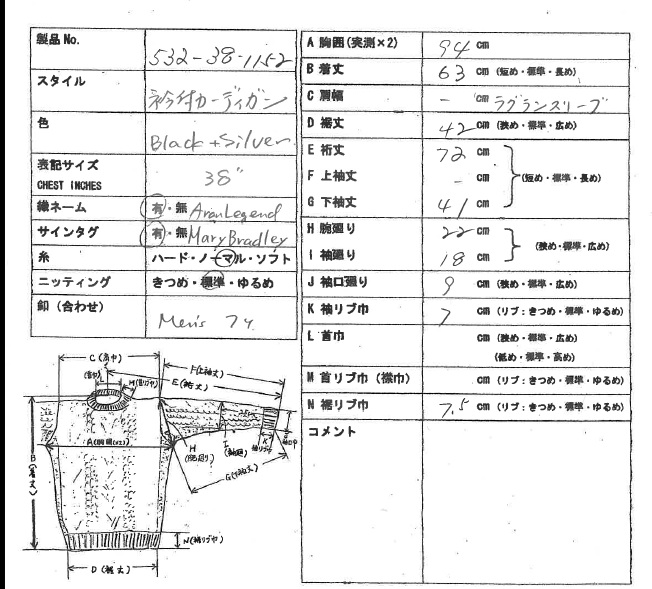 製品 No. 532-38-1152
スタイル 衿付カーディガン
色 Black + Silver
表記サイズ
CHEST INCHES 38"
織ネーム 有・無 Aran Legend
サインタグ 有・無 Mary Bradley
糸 ハード・ノーマル・ソフト
ニッティング きつめ・標準・ゆるめ
釦（合わせ） Men's 7ケ
A 胸囲(実測×2) 94 cm
B 着丈 63 cm (短め・標準・長め)
C 肩幅 - cm ラグランスリーブ
D 裾丈 42 cm (狭め・標準・広め)
E 裄丈 72 cm
F 上袖丈 - cm (短め・標準・長め)
G 下袖丈 41 cm
H 腕廻り 22 cm
I 袖廻り 18 cm (狭め・標準・広め)
J 袖口廻り 9 cm (狭め・標準・広め)
K 袖リブ巾 7 cm (リブ：きつめ・標準・ゆるめ)
L 首巾 cm (狭め・標準・広め)
(低め・標準・高め)
M 首リブ巾（襟巾） cm (リブ：きつめ・標準・ゆるめ)
N 裾リブ巾 7.5 cm (リブ：きつめ・標準・ゆるめ)
コメント
C (肩巾)
F(上袖丈)
E(裄丈)
L
B(着丈)
H
I
K
J
G(下袖丈)
N(裾リブ巾)
D(裾丈)